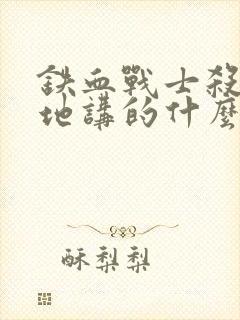 鉄血戰士殺
地講的什麼
酥梨梨